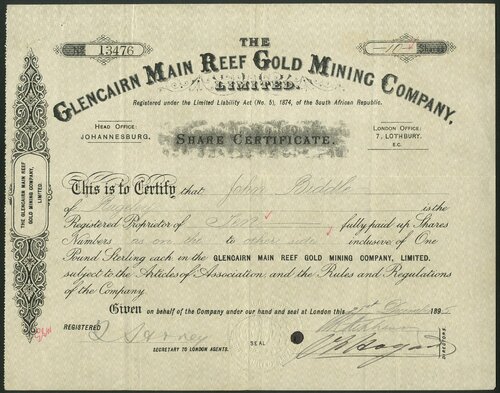 THE
No 13476
-10- Shares
GLENCAIRN MAIN REEF GOLD MINING COMPANY,
LIMITED.
Registered under the Limited Liability Act (No. 5), 1874, of the South African Republic.
HEAD OFFICE:
JOHANNESBURG.
LONDON OFFICE:
7, LOTHBURY.
E.C.
SHARE CERTIFICATE.
THE GLENCAIRN MAIN REEF
GOLD MINING COMPANY,
LIMITED.
This is to Certify that John Biddle
of is the
Registered Proprietor of Ten fully paid up Shares
Numbers as on the to other side inclusive of One
Pound Sterling each in the GLENCAIRN MAIN REEF GOLD MINING COMPANY, LIMITED.
subject to the Articles of Association and the Rules and Regulations
of the Company.
Given on behalf of the Company under our hand and seal at London this 21st December 189
REGISTERED
SECRETARY TO LONDON AGENTS.
SEAL
DIRECTORS.